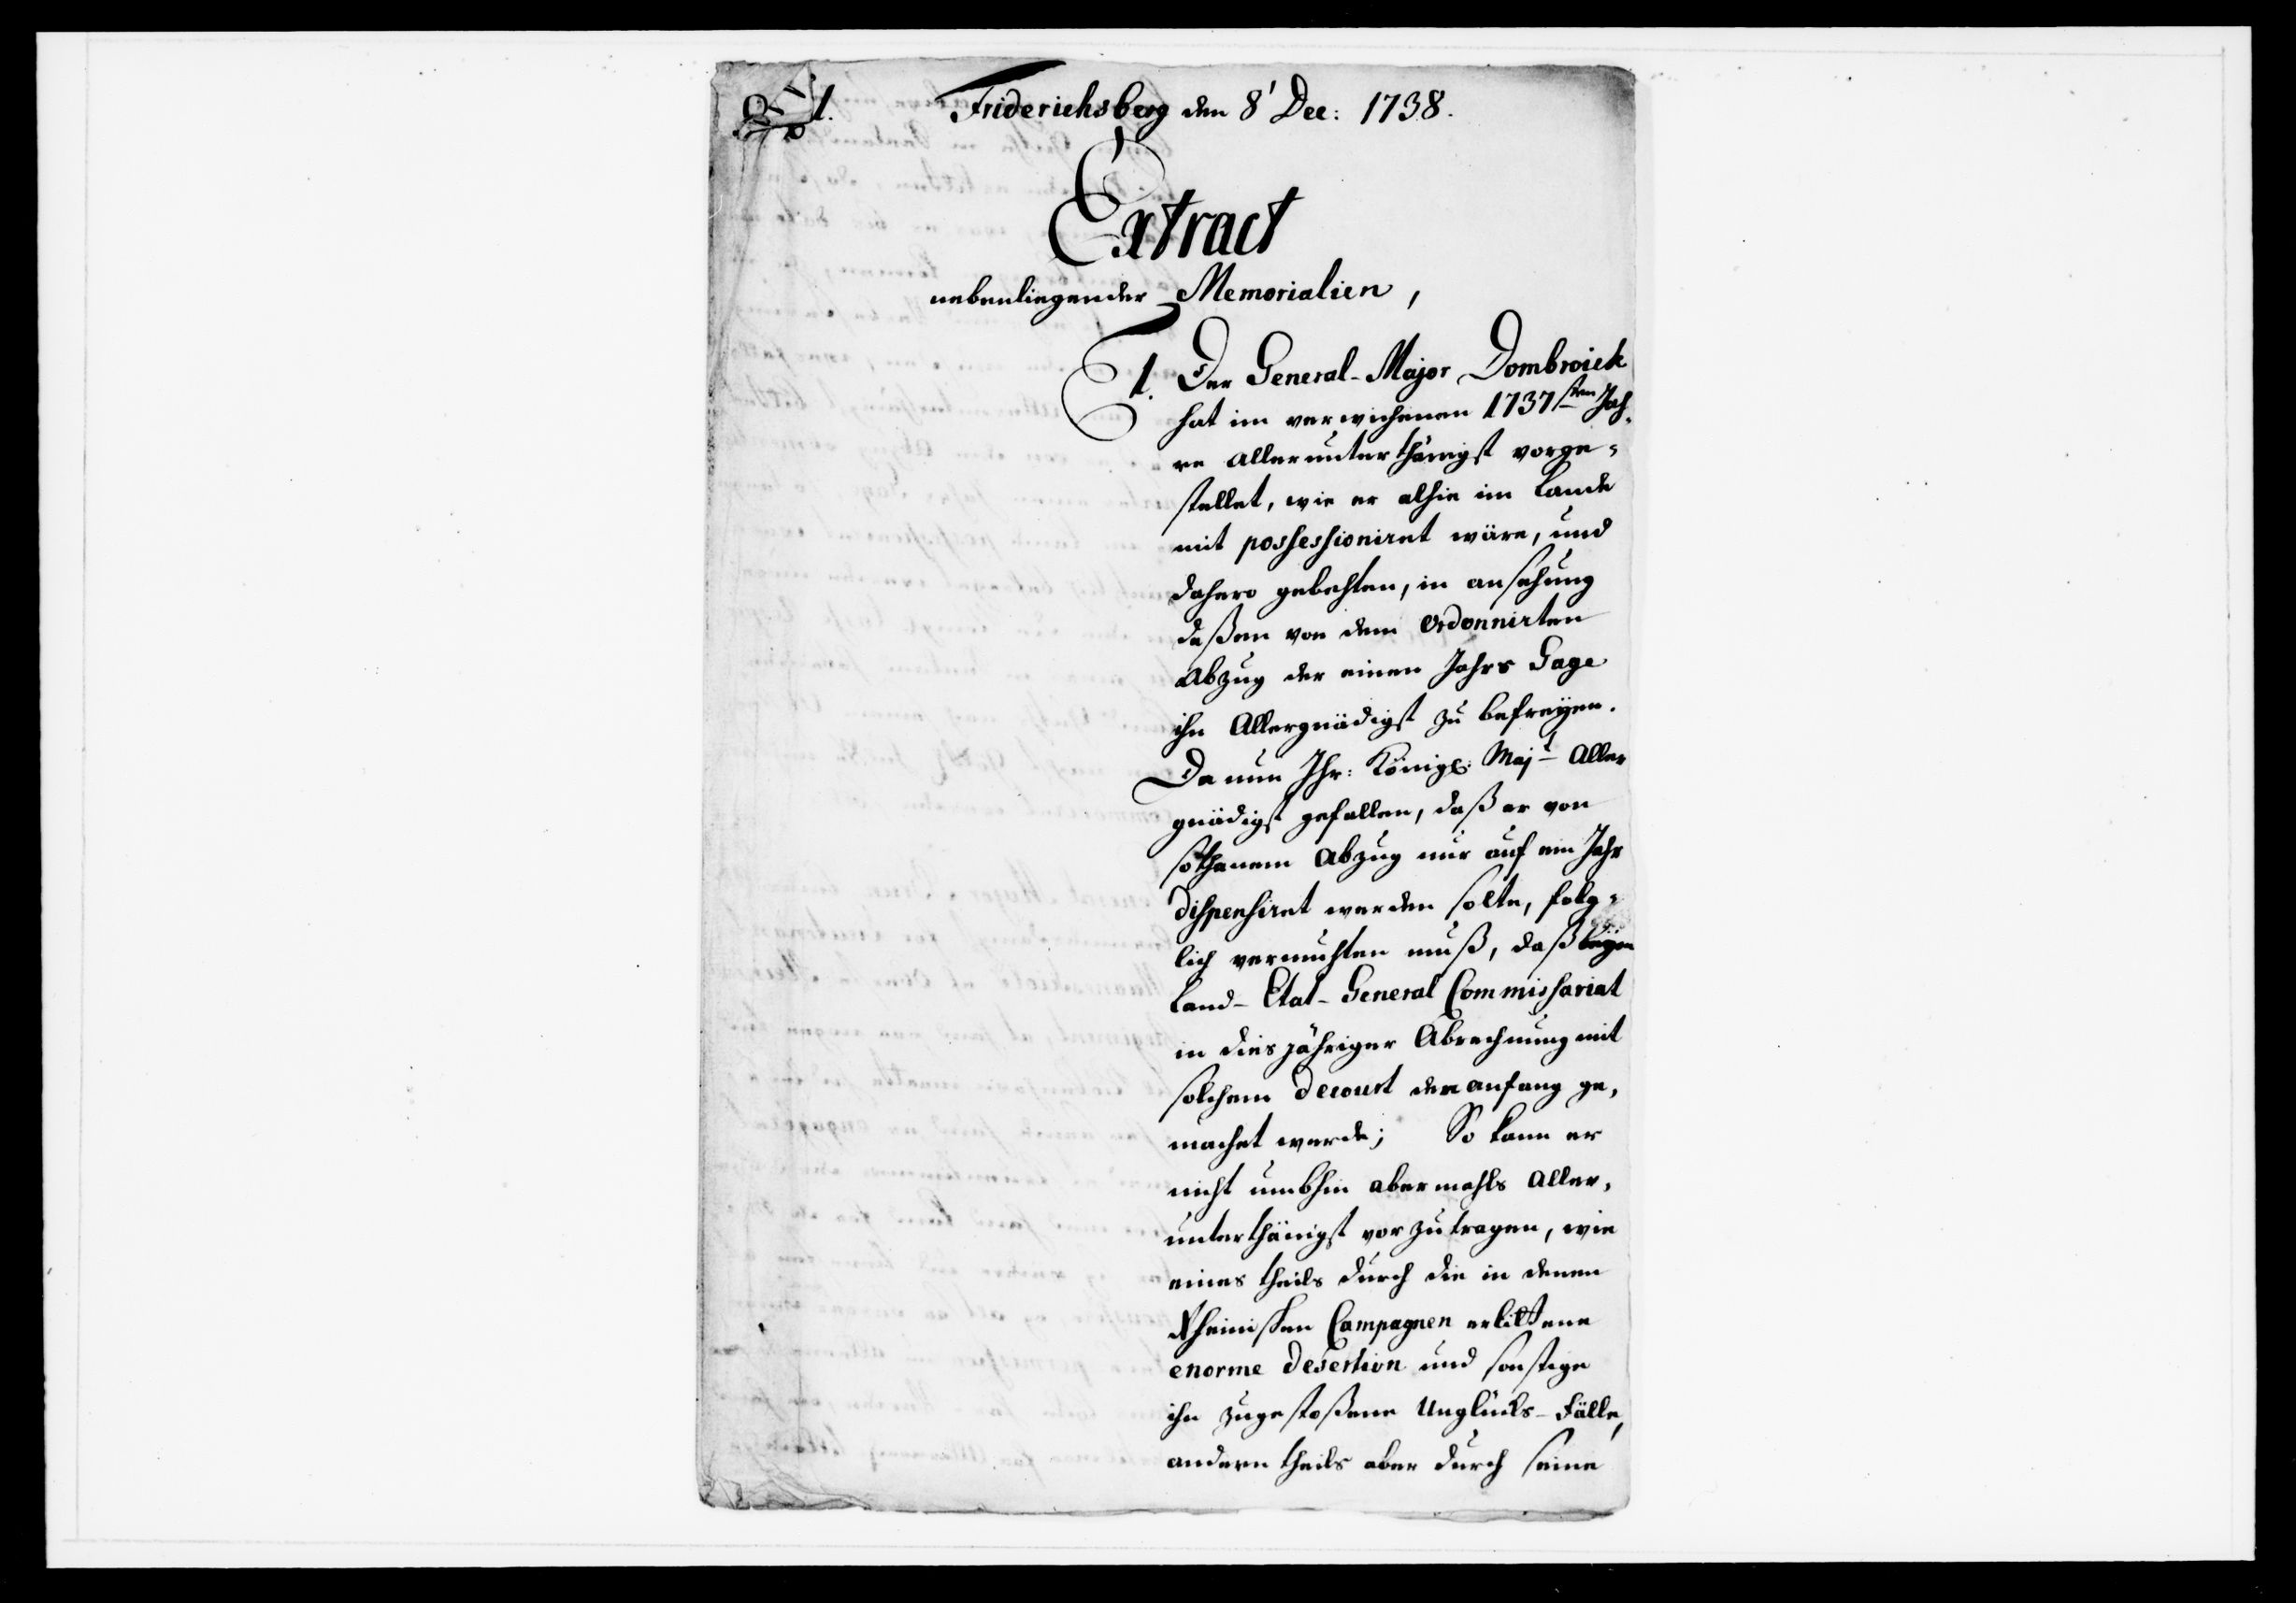 1.
Friderichsberg den 8' Dec: 1738.
Extract
nebenliegender Memorialien,
1. Der General-Major Dombroick
hat im verwichenen 1737sten Jah,
re allerunterthänigst vorge=
stellet, wie er alhie im Lande
mit possessioniret wäre, und
dahero gebehten, in ansehung
deßen von dem ordonnirten
Abzug der einen Jahrs Gage
ihn Allergnädigst zu befreyen.
Da nun Ihr: Königl: Majt Aller
gnädigst gefallen, daß er von
sothanem Abzug nur auf ein Jahr
dispensiret werden solte, folg=
lich vermuhten muß, daß beym
Land-Etat-General Commissariat
in diesjähriger Abrechnung mit
solchem decourt der anfang ge,
machet werde; So kann er
nicht umbhin abermahls Aller,
unterthänigst vorzutragen, wie
eines theils durch die in denen
Rheinischen Campagnen erlittene
enorme desertion und sonstige
ihn zugestoßene Unglücks-Fälle,
andern theils aber durch seine